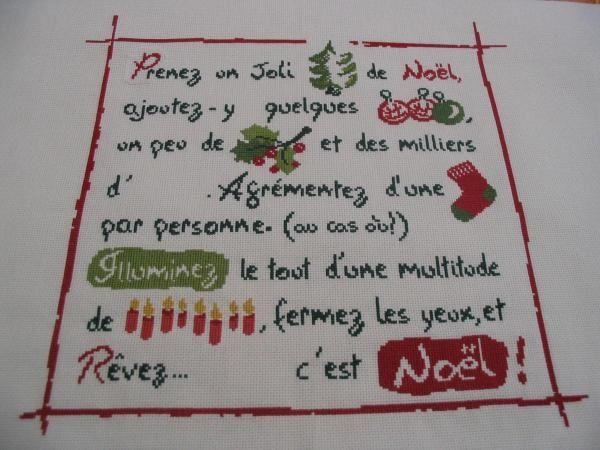 Prenez un Joli de Noël,
ajoutez-y quelques ,
un peu de et des milliers
d' . Agrémentez d'une
par personne. (au cas où!)
Illuminez le tout d'une multitude
de , fermez les yeux, et
Rêvez... c'est Noël!